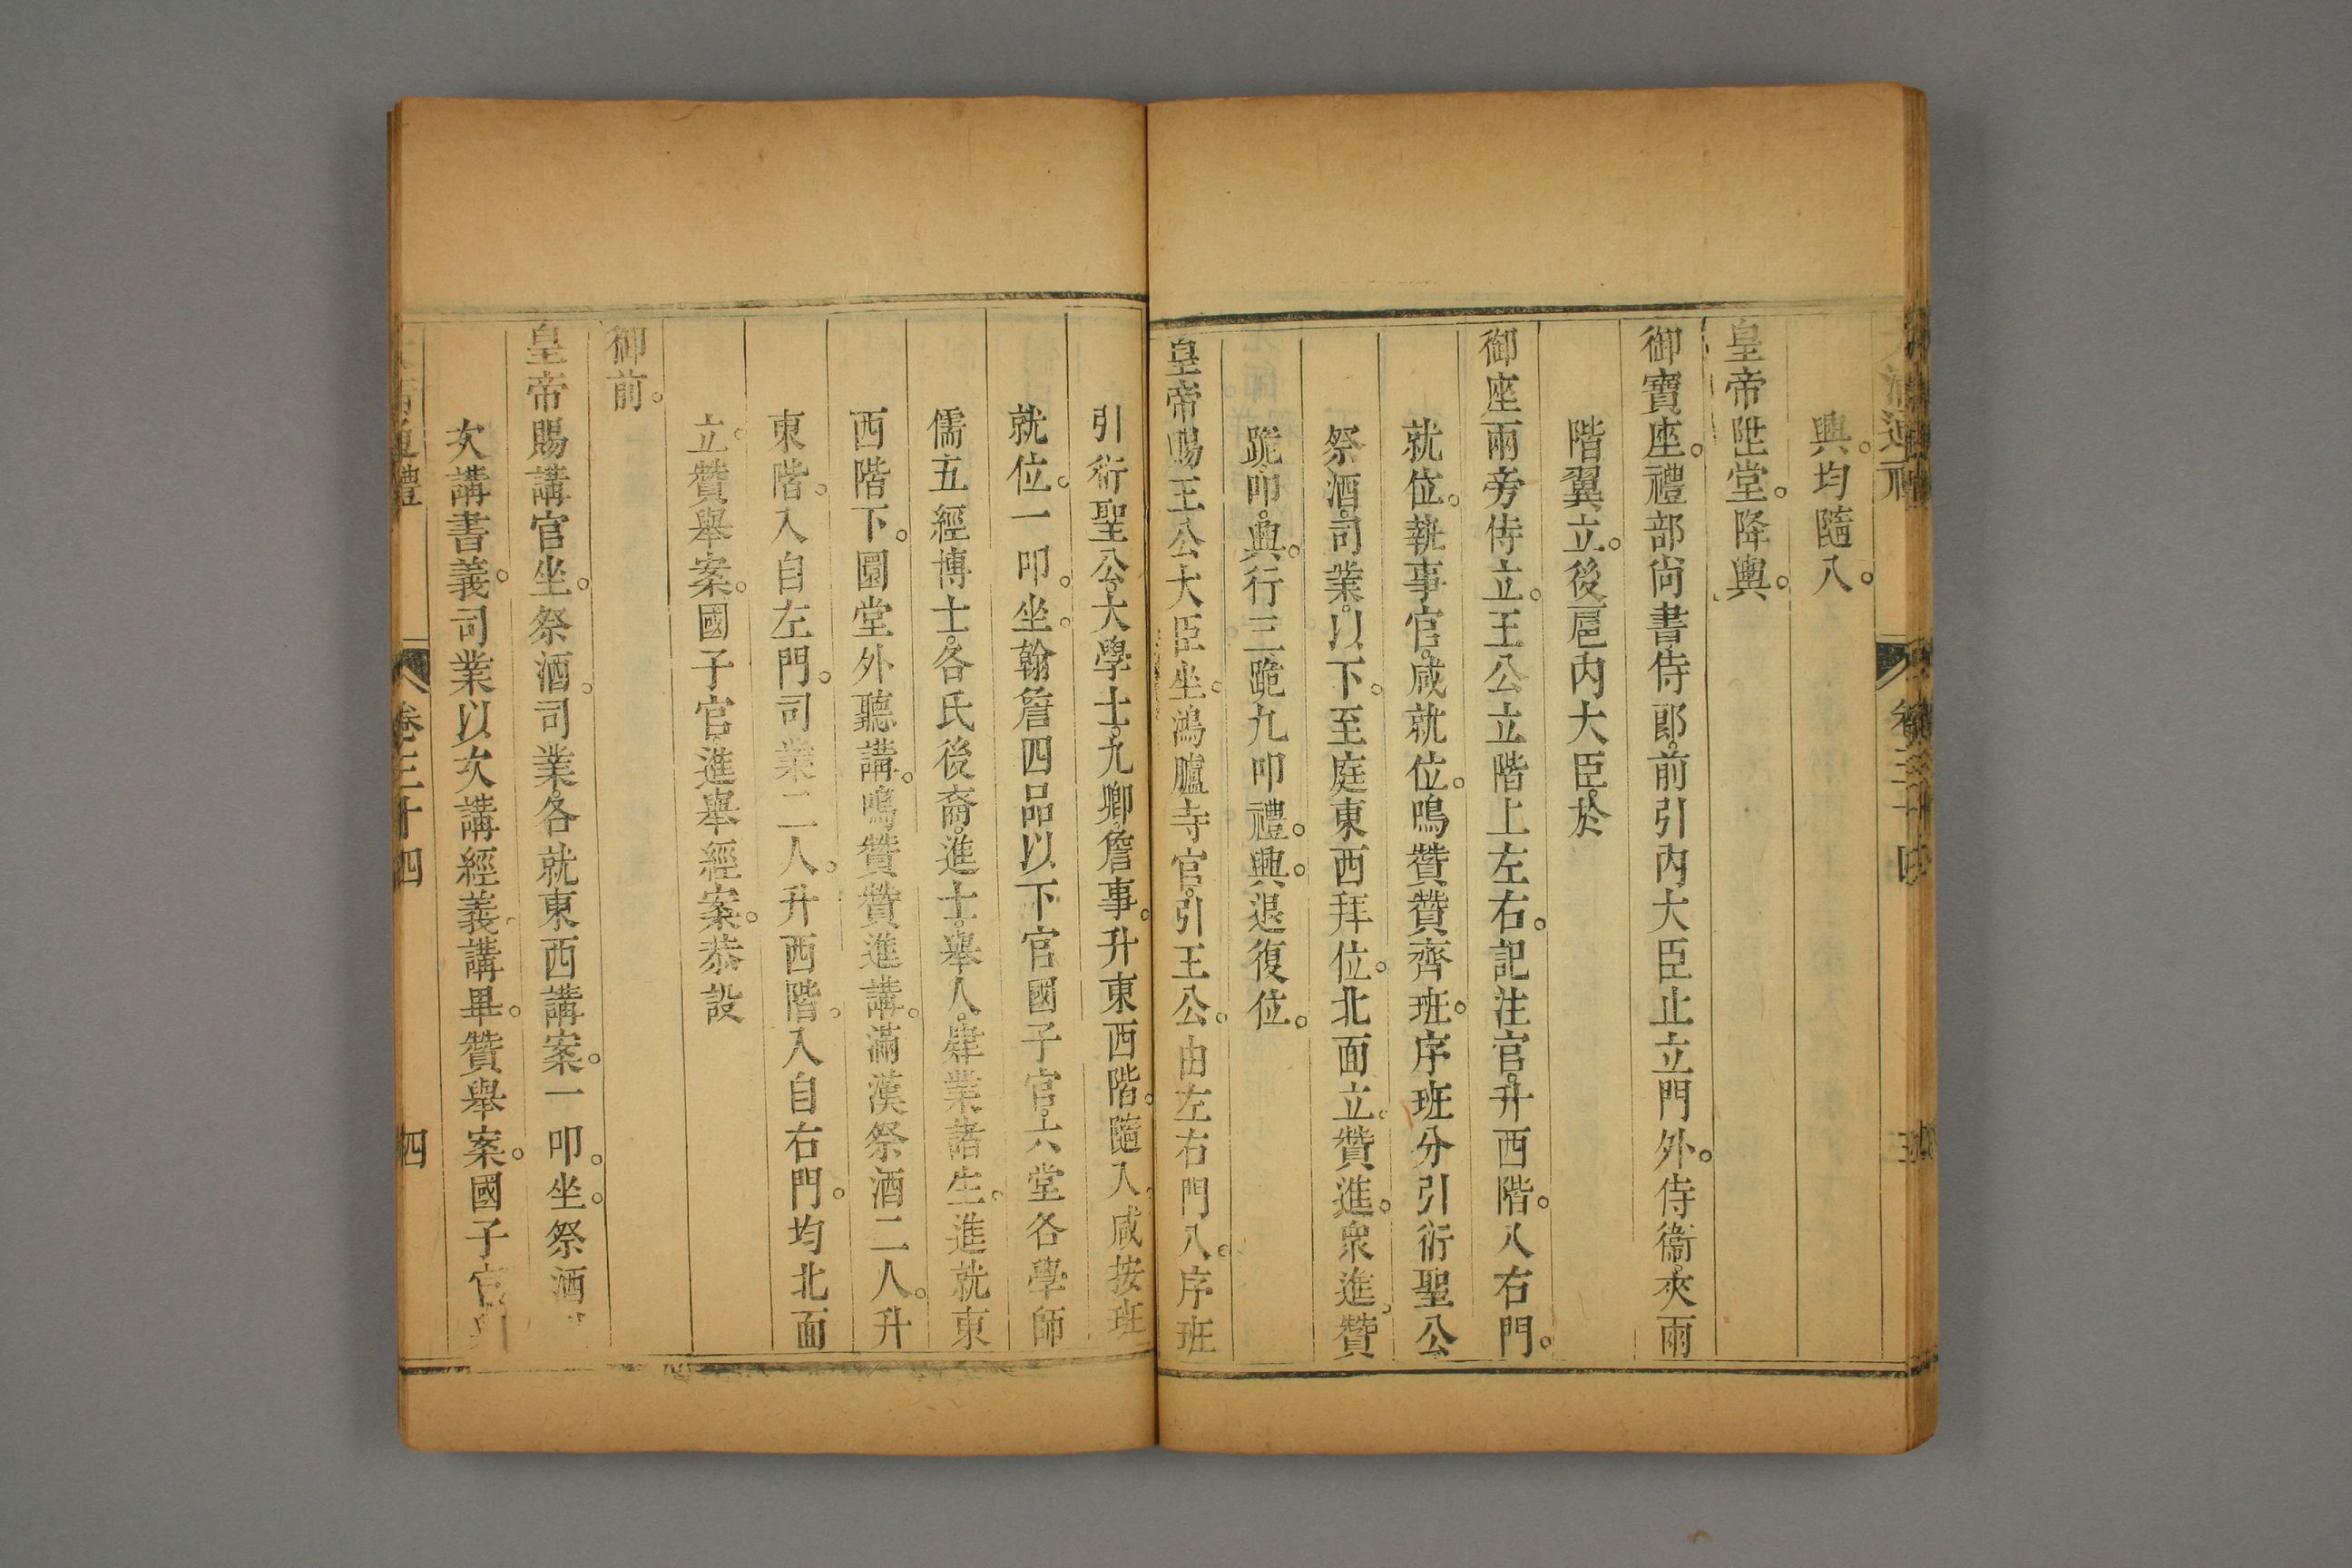 大清通禮 卷三十四 三
興。均隨入。
皇帝陞堂。降輿。
御寶座。禮部尚書、侍郎。前引內大臣止立門外。侍衞。夾兩
階翼立。後扈內大臣。於
御座兩旁侍立。王公立階上左右。記注官。升西階。入右門。
就位。執事官。咸就位。鳴贊贊齊班。序班分引衍聖公
祭酒。司業。以下。至庭東西拜位。北面立。贊進。衆進。贊
跪。叩。興。行三跪九叩禮。興。退復位。
皇帝賜王公大臣坐。鴻臚寺官。引王公。由左右門入。序班
引衍聖公。大學士。九卿。詹事。升東西階。隨入。咸按班
就位。一叩。坐。翰詹四品以下官國子官。六堂各學師
儒五經博士。各氏後裔。進士。舉人。肄業諸生。進就東
西階下。圜堂外聽講。鳴贊贊進講。滿漢祭酒二人。升
東階。入自左門。司業二人。升西階。入自右門。均北面
立。贊舉案。國子官。進舉經案。恭設
御前。
皇帝賜講官坐。祭酒。司業。各就東西講案。一叩。坐。祭酒以
次講書義。司業以次講經義。講畢。贊舉案。國子官
大清通禮 卷三十四 四